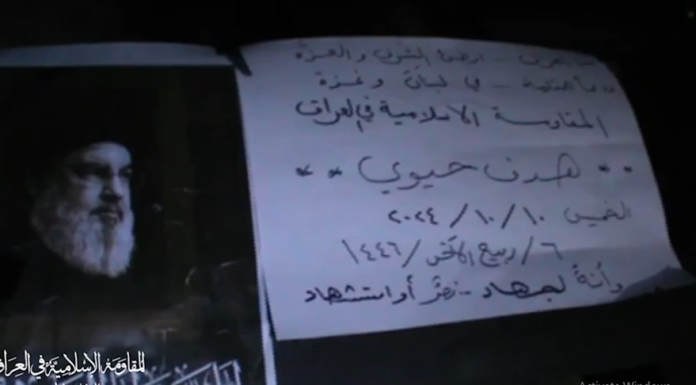 العراق .. ارض الشرف و العزة
.. في لبنان و غزة
المقاومة الاسلامية في العراق
** هدف حيوي **
الخميس ١٠/١٠/٢٠٢٤
٦/ربيع الآخر/١٤٤٦
وأنهُ لجهاد .. نصرٌ أو استشهاد
المقاومة الإسلامية في العراق
Activate Windows